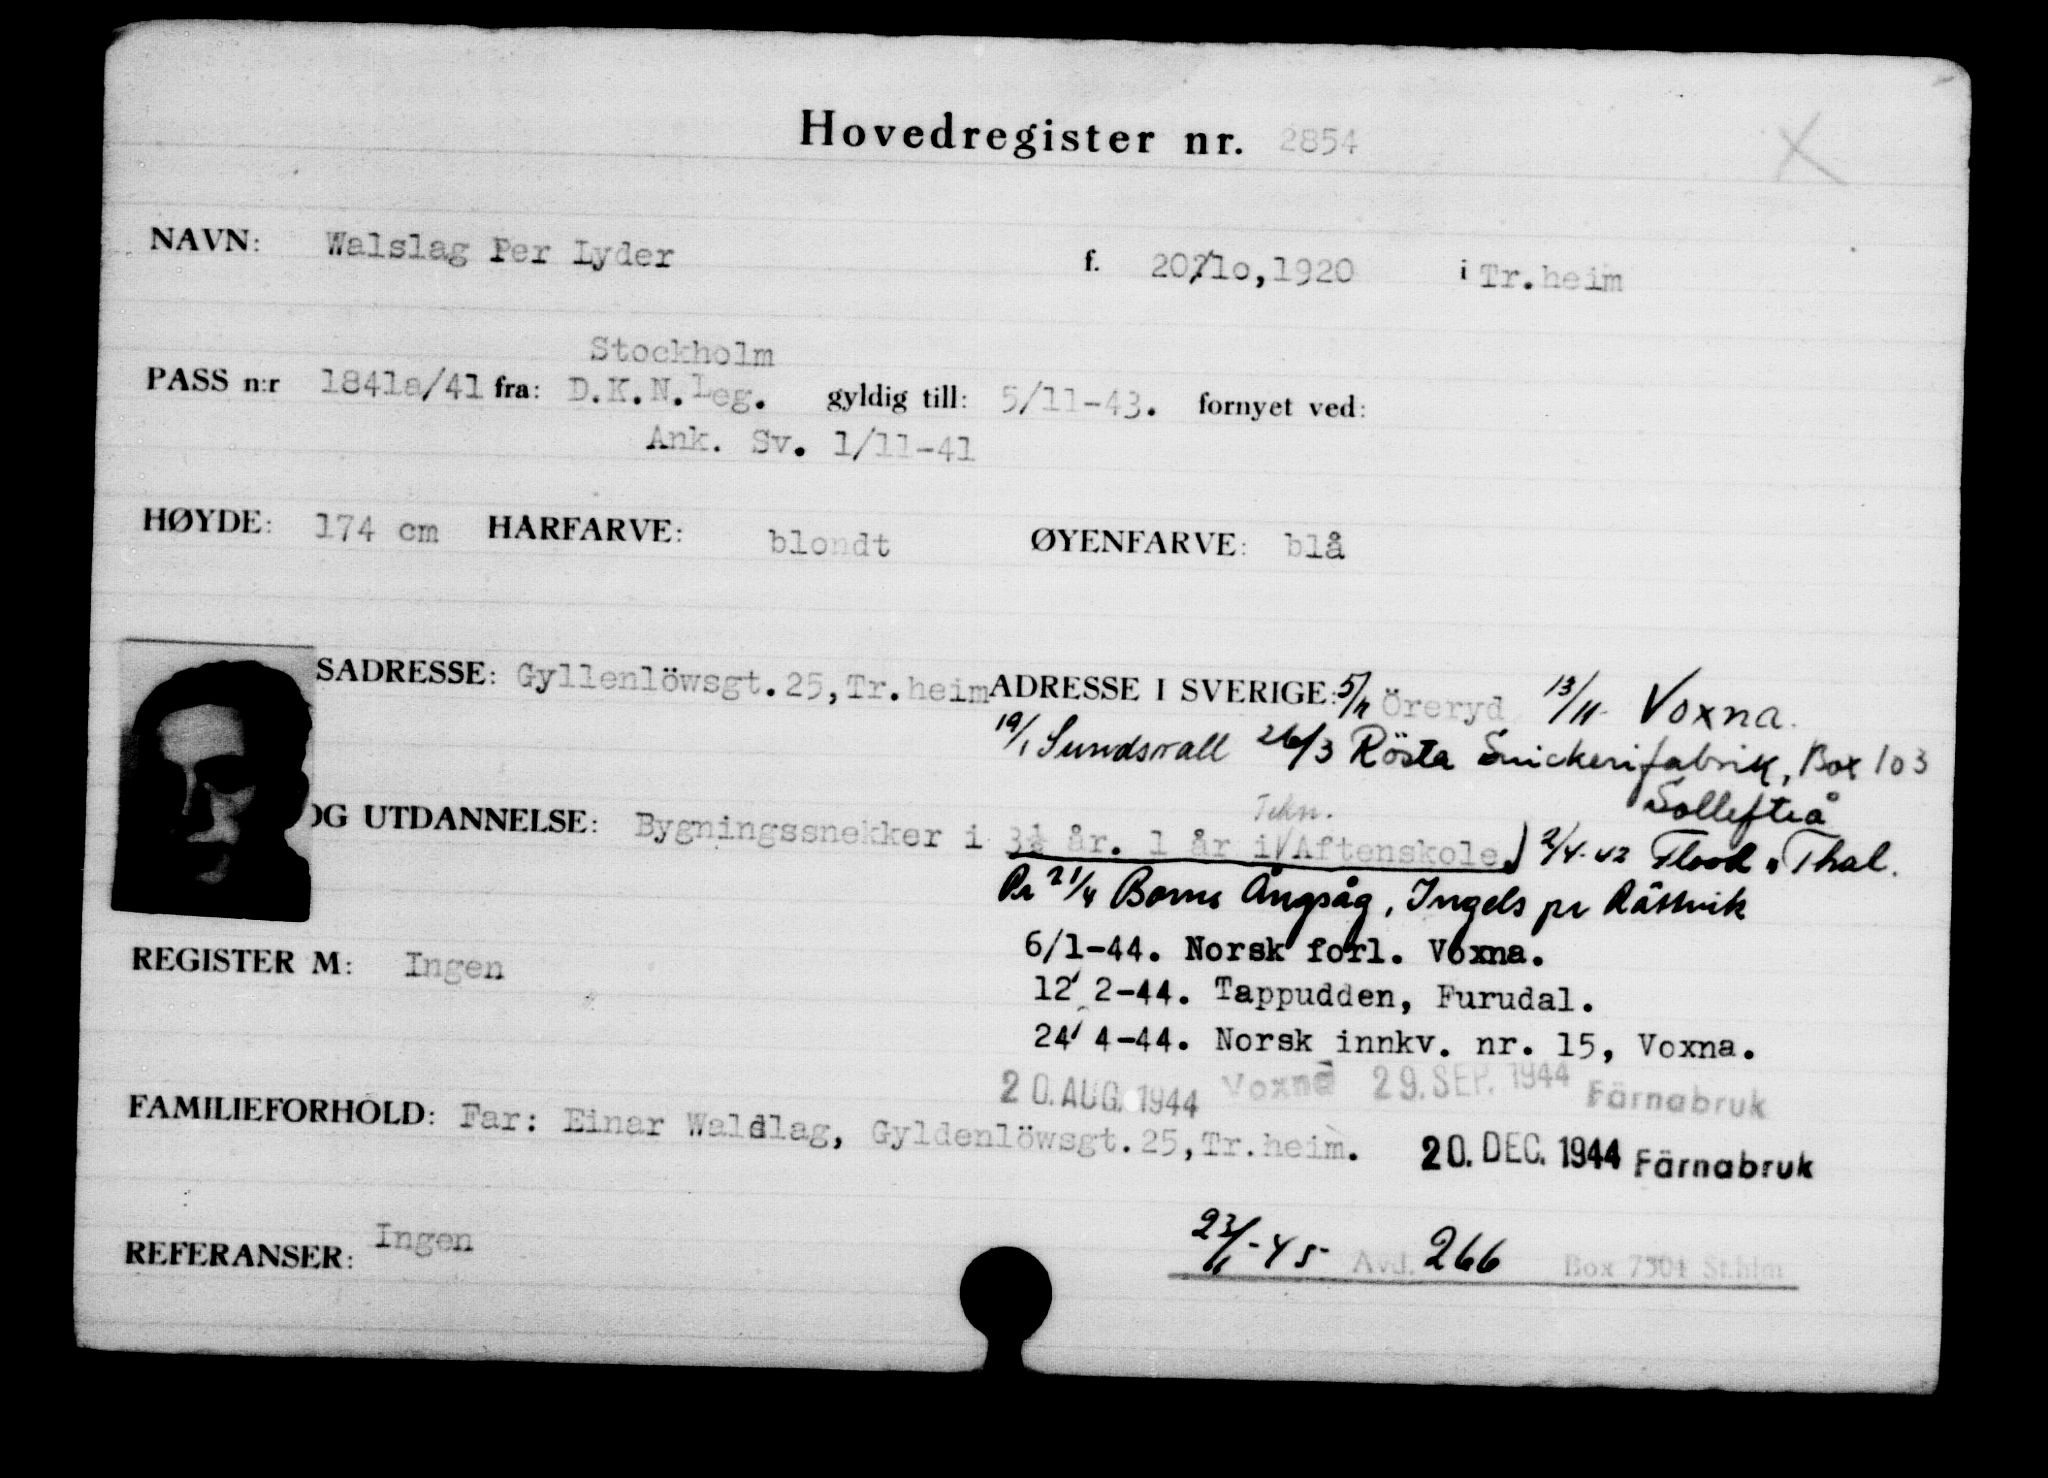 Hovedregister nr. 2854
NAVN: Walslag Per Lyder f. 20/10, 1920 i Tr.heim
Stockholm
PASS n:r 1841a/41 fra: D.K.N.Leg. gyldig till: 5/11-43. fornyet ved:
Ank. Sv. 1/11-41
HØYDE: 174 cm HÅRFARVE: blondt ØYENFARVE: blå
SADRESSE: Gyllenlöwsgt.25,Tr.heim ADRESSE I SVERIGE: 5/11 Öreryd 13/11- Voxna.
19/1 Sundsvall 26/3 Rösta Snickerifabrik, Box 103
Sollefteå
OG UTDANNELSE: Bygningssnekker i 3½ år. 1 år i Tekn. Aftenskole. 2/4-42 Flood, Thal.
Pr 21/4 Ångsåg, Ingels pr Rättvik
6/1-44. Norsk forl. Voxna.
REGISTER M: Ingen
12/ 2-44. Tappudden, Furudal.
24/ 4-44. Norsk innkv. nr. 15, Voxna.
20. AUG. 1944 Voxna 29. SEP. 1944 Färnabruk
FAMILIEFORHOLD: Far: Einar Walslag, Gyldenlöwsgt.25,Tr.heim.
20. DEC. 1944 Färnabruk
REFERANSER: Ingen
23/-45- Avd. 266 Box 7301 St.hlm